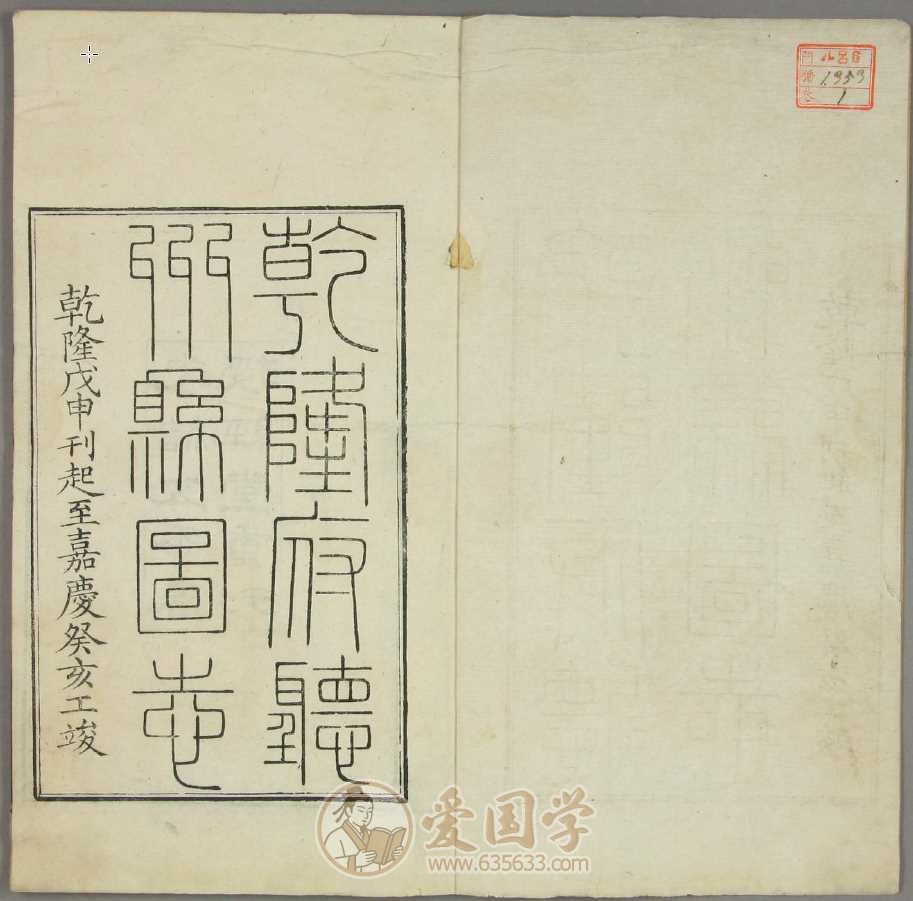 乾隆府聽
州縣圖志
乾隆戊申刊起至嘉慶癸亥工竣
門
號 1953
卷 1
爱国学
www.635633.com